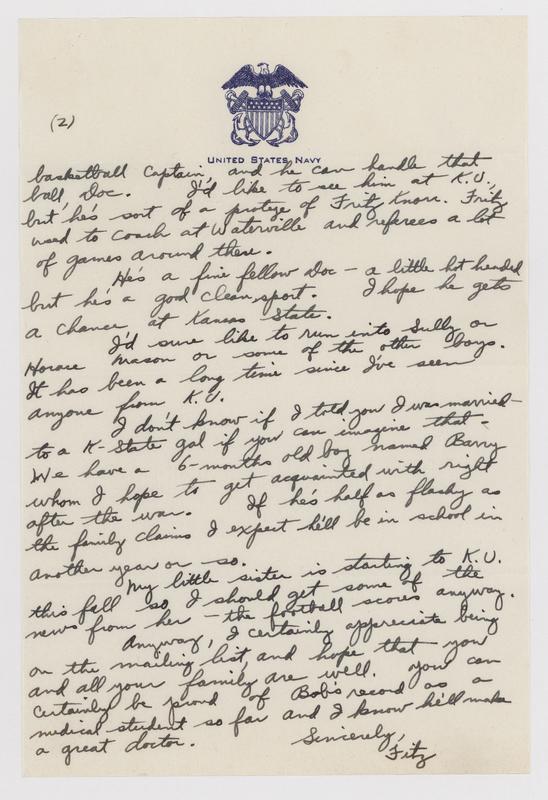 (2)
UNITED STATES NAVY
basketball captain, and he can handle that
ball, Doc. I'd like to see him at K.U.,
but he's sort of a protege of Fritz Knorr. Fritz
used to coach at Waterville and referees a lot
of games around there.
He's a fine fellow Doc - a little hot headed
but he's a good clean sport. I hope he gets
a chance at Kansas State.
I'd sure like to run into Sully or
Horace Mason or some of the other boys.
It has been a long time since I've seen
anyone from K.U.
I don't know if I told you I was married-
to a K-State gal if you can imagine that -
We have a 6-months old boy named Barry
whom I hope to get acquainted with right
after the war. If he's half as flashy as
the family claims I expect he'll be in school in
another year or so.
My little sister is starting to K.U.
this fall so I should get some of the
news from her - the football scores anyway.
Anyway, I certainly appreciate being
on the mailing list, and hope that you
and all your family are well. You can
certainly be proud of Bob's record as a
medical student so far and I know he'll make
a great doctor.
Sincerely,
Fitz